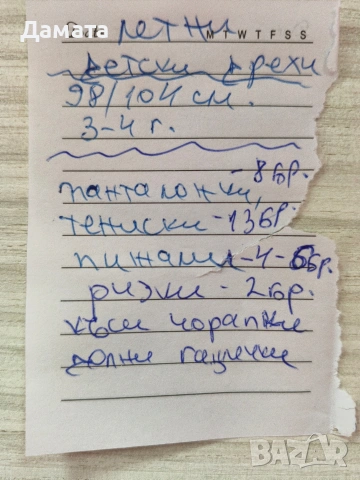 Дамата
летни
M T W T F S S
детски дрехи
98/104 см.
3-4 г.
- 8бр.
панталонки,
тениски - 13бр.
пижами - 4 - 6бр.
ризки - 2бр.
къси чорапки
долни гащички
BAZAR